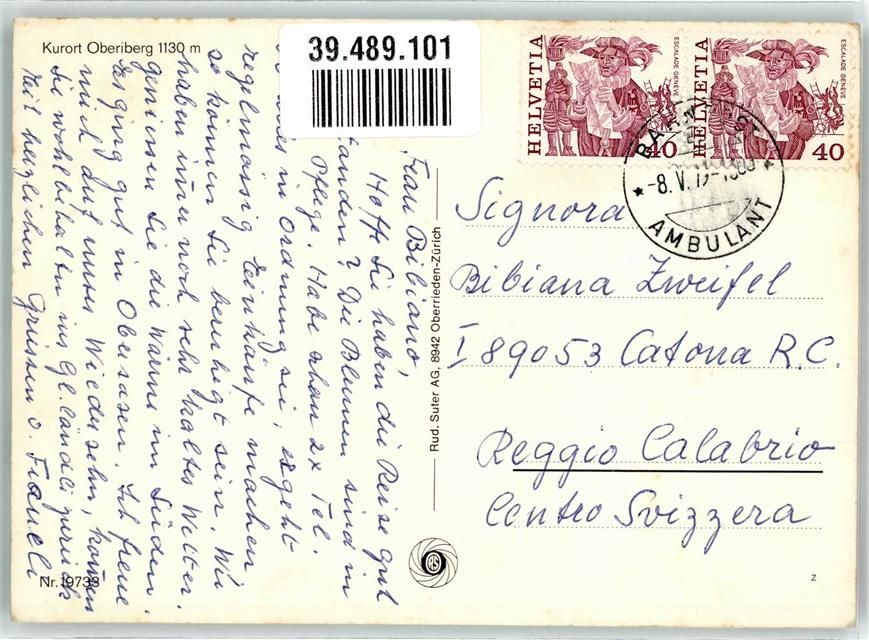 Kurort Oberiberg 1130 m
39.489.101
HELVETIA
ESCALADE GENÈVE
40
HELVETIA
ESCALADE GENÈVE
40
-8.V.79-
AMBULANT
Frau Bibiano,
Hoffe Sie haben die Reise gut
tanden? Die Blumen sind in
Pflege. Habe schon 2x Tel.
alles in Ordnung sei, es geht
regelmässig Einkäufe machen
so können Sie beruhigt sein. Wir
haben immer noch sehr kaltes Wetter.
geniessen Sie die Wärme im Süden.
Es ging gut in Oberasen. Ich freue
mich auf unser Wiedersehn, kommen
Sie wohlbehalten ins Gl. Ländli zurück
Mit herzlichen Grüssen
Rud. Suter AG, 8942 Oberrieden-Zürich
Nr. 19733
Signora
Bibiana Zweifel
I 89053 Catona R.C.
Reggio Calabrio
Centro Svizzera
Z